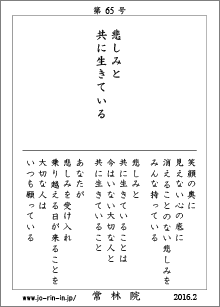 第65号
悲しみと
共に生きている
笑顔の奥に
見えない心の底に
消えることのない悲しみを
みんな持っている
悲しみと
共に生きていることは
今はいない大切な人と
共に生きていること
あなたが
悲しみを受け入れ
乗り越える日が来ることを
大切な人は
いつも願っている
www.jo-rin-in.jp/
常林院
2016.2